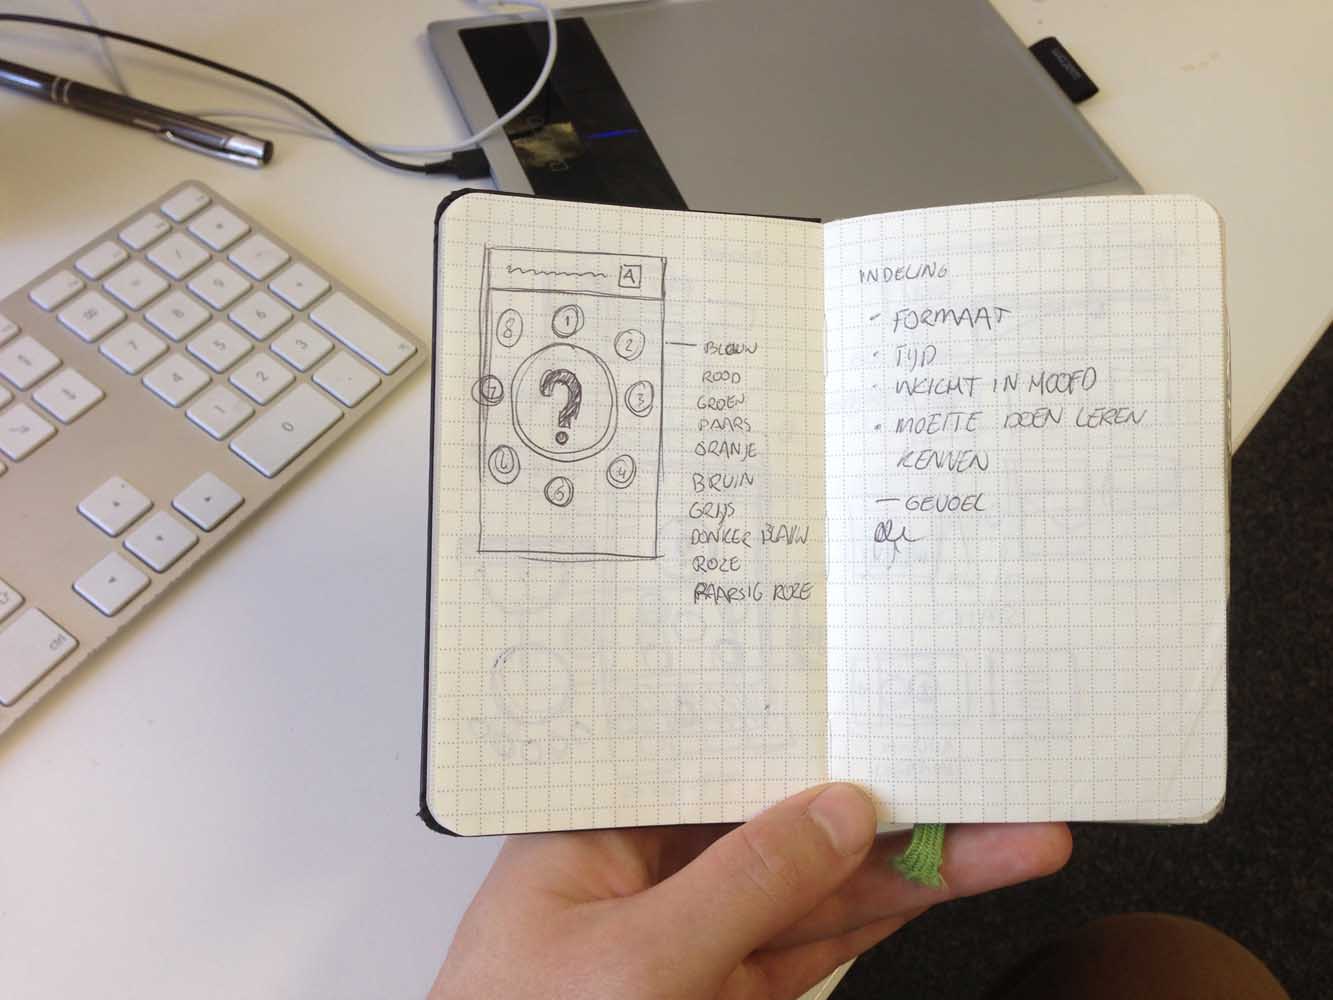 A
8
1
2
7
3
6
4
5
?
BLAUW
ROOD
GROEN
PAARS
ORANJE
BRUIN
GRIJS
DONKER BLAUW
ROZE
PAARSIG ROZE
INDELING
- FORMAAT
• TIJD
• IN HOOFD
• MOEITE DOEN LEREN
KENNEN
— GEVOEL
ctrl
0
1
2
3
4
5
6
7
8
9